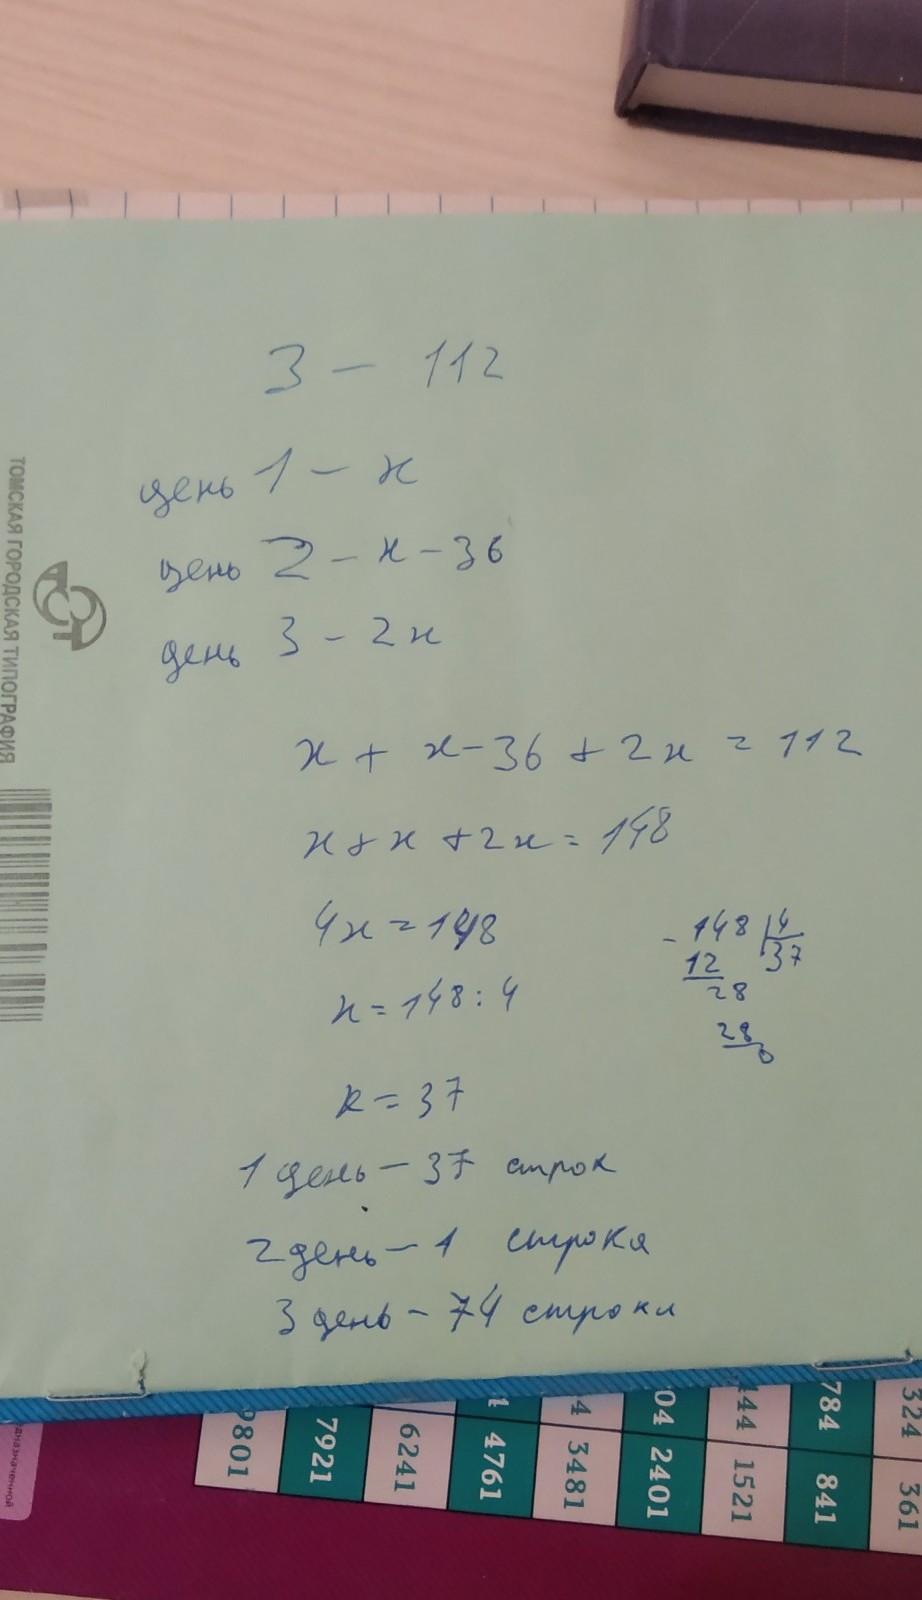 3 - 112
день 1 - x
день 2 - x - 36
день 3 - 2x
x + x - 36 + 2x = 112
x + x + 2x = 148
4x = 148
x = 148 : 4
x = 37
- 148 4
12 37
28
28
0
1 день - 37 строк
2 день - 1 строка
3 день - 74 строки
ТОМСКАЯ ГОРОДСКАЯ ТИПОГРАФИЯ
9801 7921 6241 4761 3481 2401 1521 841 361
04 784 324